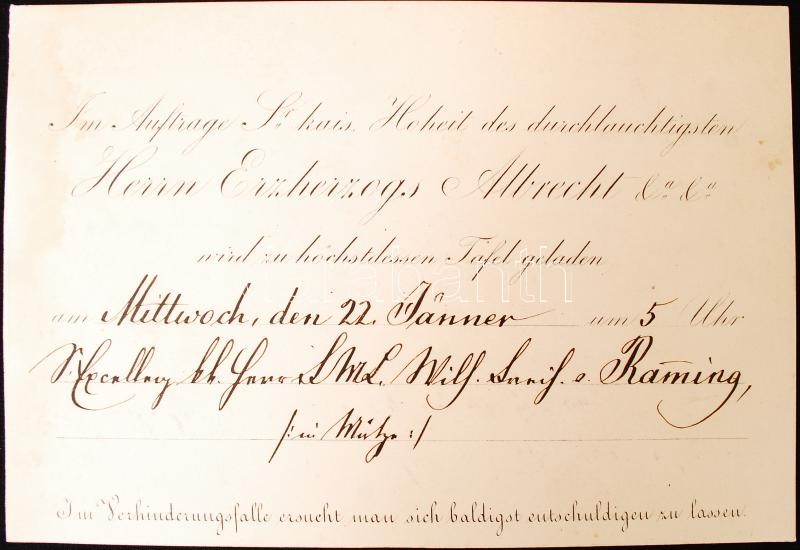 Im Auftrage Sr kais. Hoheit des durchlauchtigsten
Herrn Erzherzogs Albrecht &a &a
wird zu höchstdessen Tafel geladen
am Mittwoch, den 22. Jänner um 5 Uhr
S. Excellenz kk. Herr F.M.L. Wilh. Freih. v. Raming,
/: in Mütze :/
Im Verhinderungsfalle ersucht man sich baldigst entschuldigen zu lassen.